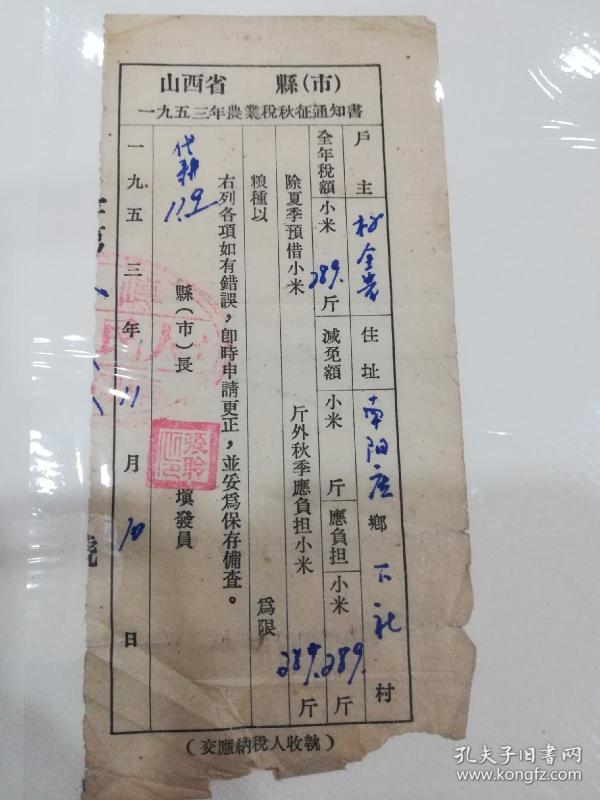 山西省　縣(市)
一九五三年農業稅秋征通知書
戶主 全 住址 南阳庄 鄉 下社 村
全年稅額 小米 289. 斤 減免額 小米 斤 應負担 小米 289. 斤
除夏季預借小米 斤外秋季應負担小米 289. 斤
粮種以 為限
右列各項如有錯誤，卽時申請更正，並妥為保存備查。
代耕 11.9
縣(市)長 填發員
一九五三年 11 月 10 日
號
(交應納稅人收執)
孔夫子旧書网
www.kongfz.com